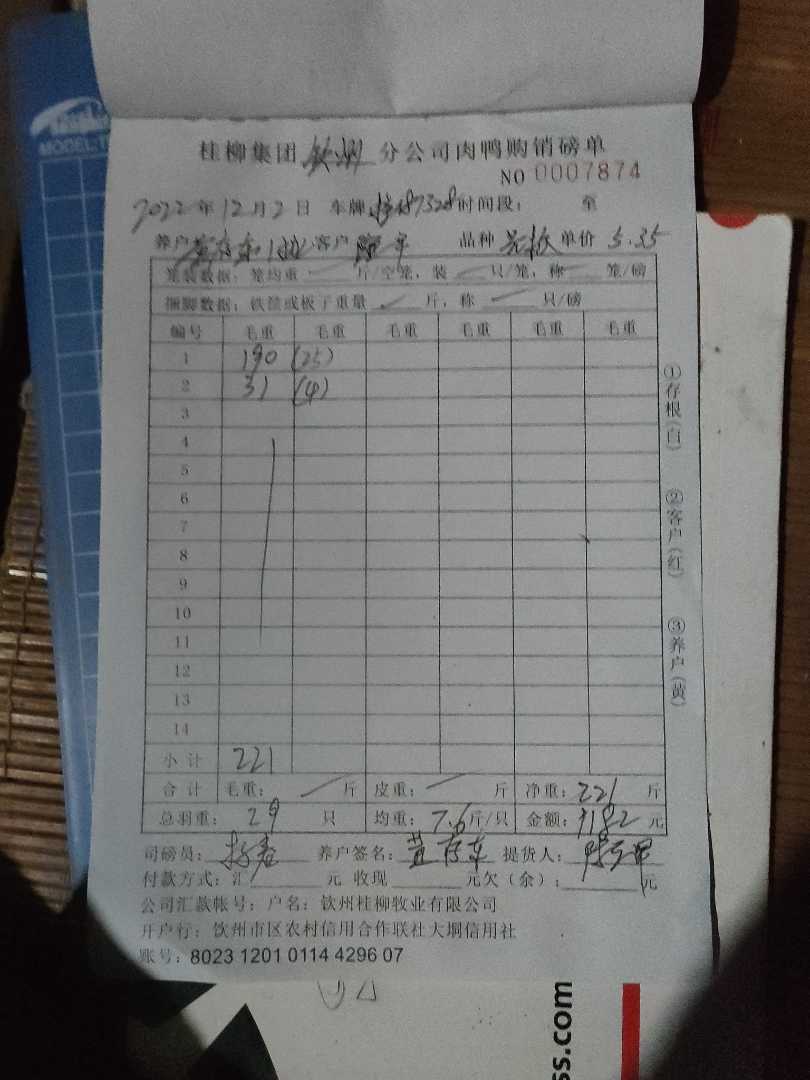 MODEL:T
桂柳集团 钦州 分公司肉鸭购销磅单
NO 0007874
2022年12月2日 车牌 87328 时间段: 至
养户 黄存东 客户 品种 单价 5.35
笼装数据: 笼均重 斤/空笼, 装 只/笼, 称 笼/磅
捆脚数据: 铁筐或板子重量 斤, 称 只/磅
编号 毛重 毛重 毛重 毛重 毛重 毛重
1 190 (25)
2 31 (4)
3
4
5
6
7
8
9
10
11
12
13
14
小计 221
合计 毛重: 斤 皮重: 斤 净重: 221 斤
总羽重: 29 只 均重: 7.6斤/只 金额: 1182 元
司磅员: 养户签名: 黄存东 提货人:
付款方式: 汇 元 收现 元欠(余): 元
公司汇款帐号: 户名: 钦州桂柳牧业有限公司
开户行: 钦州市区农村信用合作联社大垌信用社
账号: 8023 1201 0114 4296 07
①存根(白) ②客户(红) ③养户(黄)
ss.com